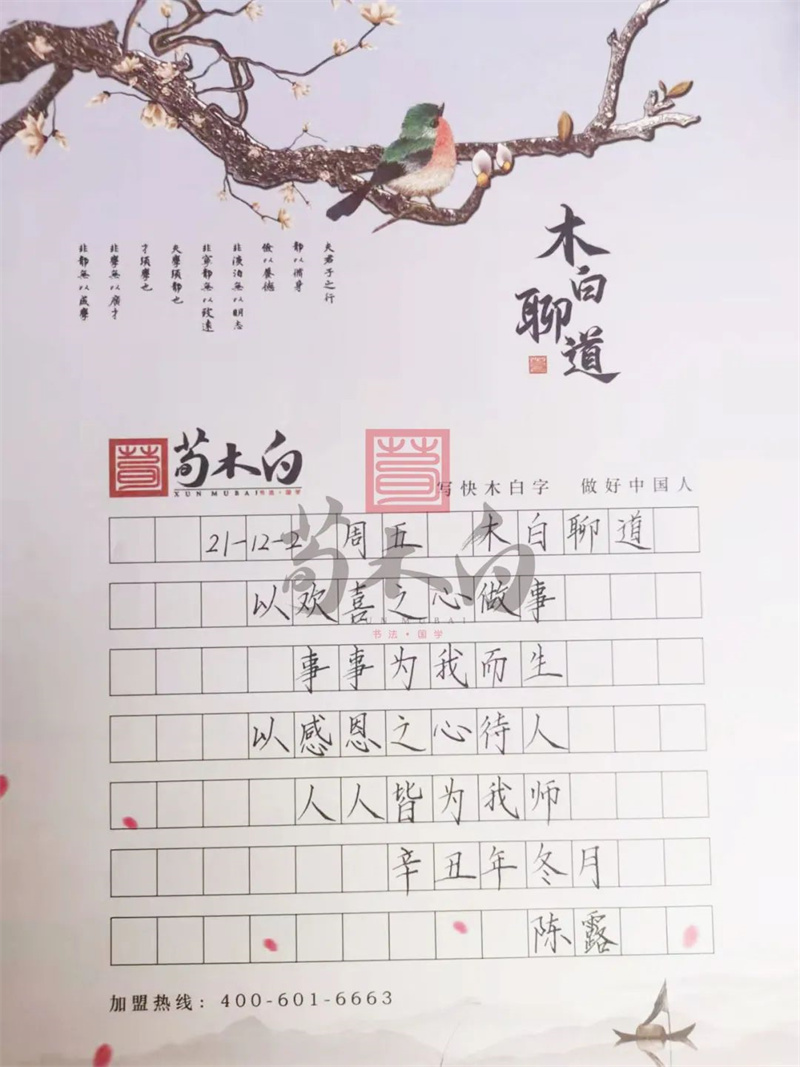 夫君子之行
靜以脩身
儉以養德
非淡泊無以明志
非寧靜無以致遠
夫學須靜也
才須學也
非學無以廣才
非靜無以成學
木白聊道
荀
荀木白
XUN MUBAI 书法·国学
写快木白字 做好中国人
荀
荀木白
XUN MUBAI
书法·国学
21-12-2 周五 木白聊道
以欢喜之心做事
事事为我而生
以感恩之心待人
人人皆为我师
辛丑年冬月
陈露
加盟热线：400-601-6663